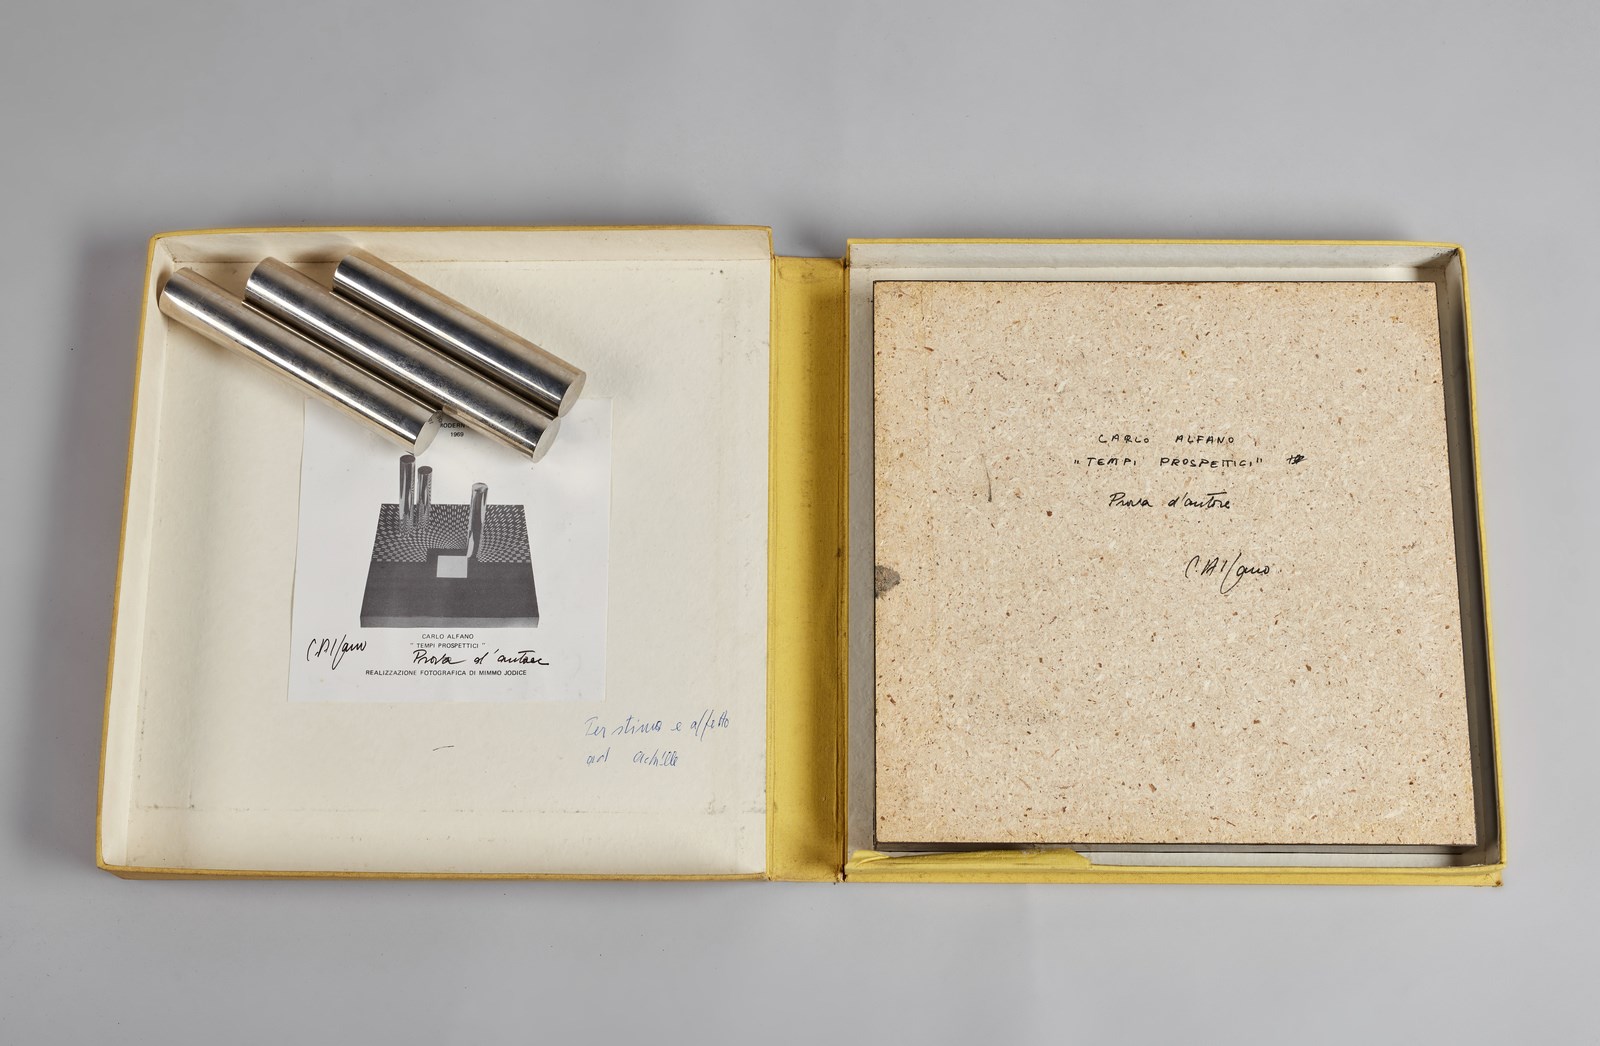 1969
CARLO ALFANO
" TEMPI PROSPETTICI "
C. Alfano Prova d'autore
REALIZZAZIONE FOTOGRAFICA DI MIMMO JODICE
Per stima e affetto
Achille
CARLO ALFANO
"TEMPI PROSPETTICI"
Prova d'autore
C. Alfano